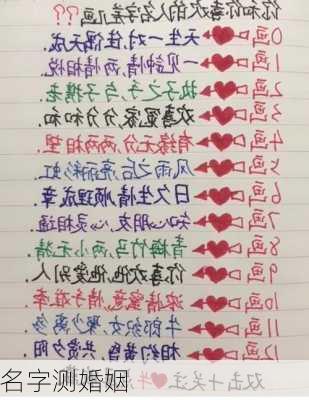 你和你喜欢的人名字差几画??
0画 天生一对,佳偶天成.
1画 一见钟情,两情相悦.
2画 执子之手,与子携老.
3画 欢喜冤家,分分和和.
4画 有缘无分,两两相望.
5画 风雨之后,亮丽彩虹.
6画 日久生情,顺理成章.
7画 知心朋友,心灵相通.
8画 青梅竹马,两小无猜.
9画 你喜欢他,他爱别人
10画 浓情蜜意,
11画 牛郎织女,聚少离多
12画 相约黄昏,共赏夕阳.
双击+关注
名字测婚姻